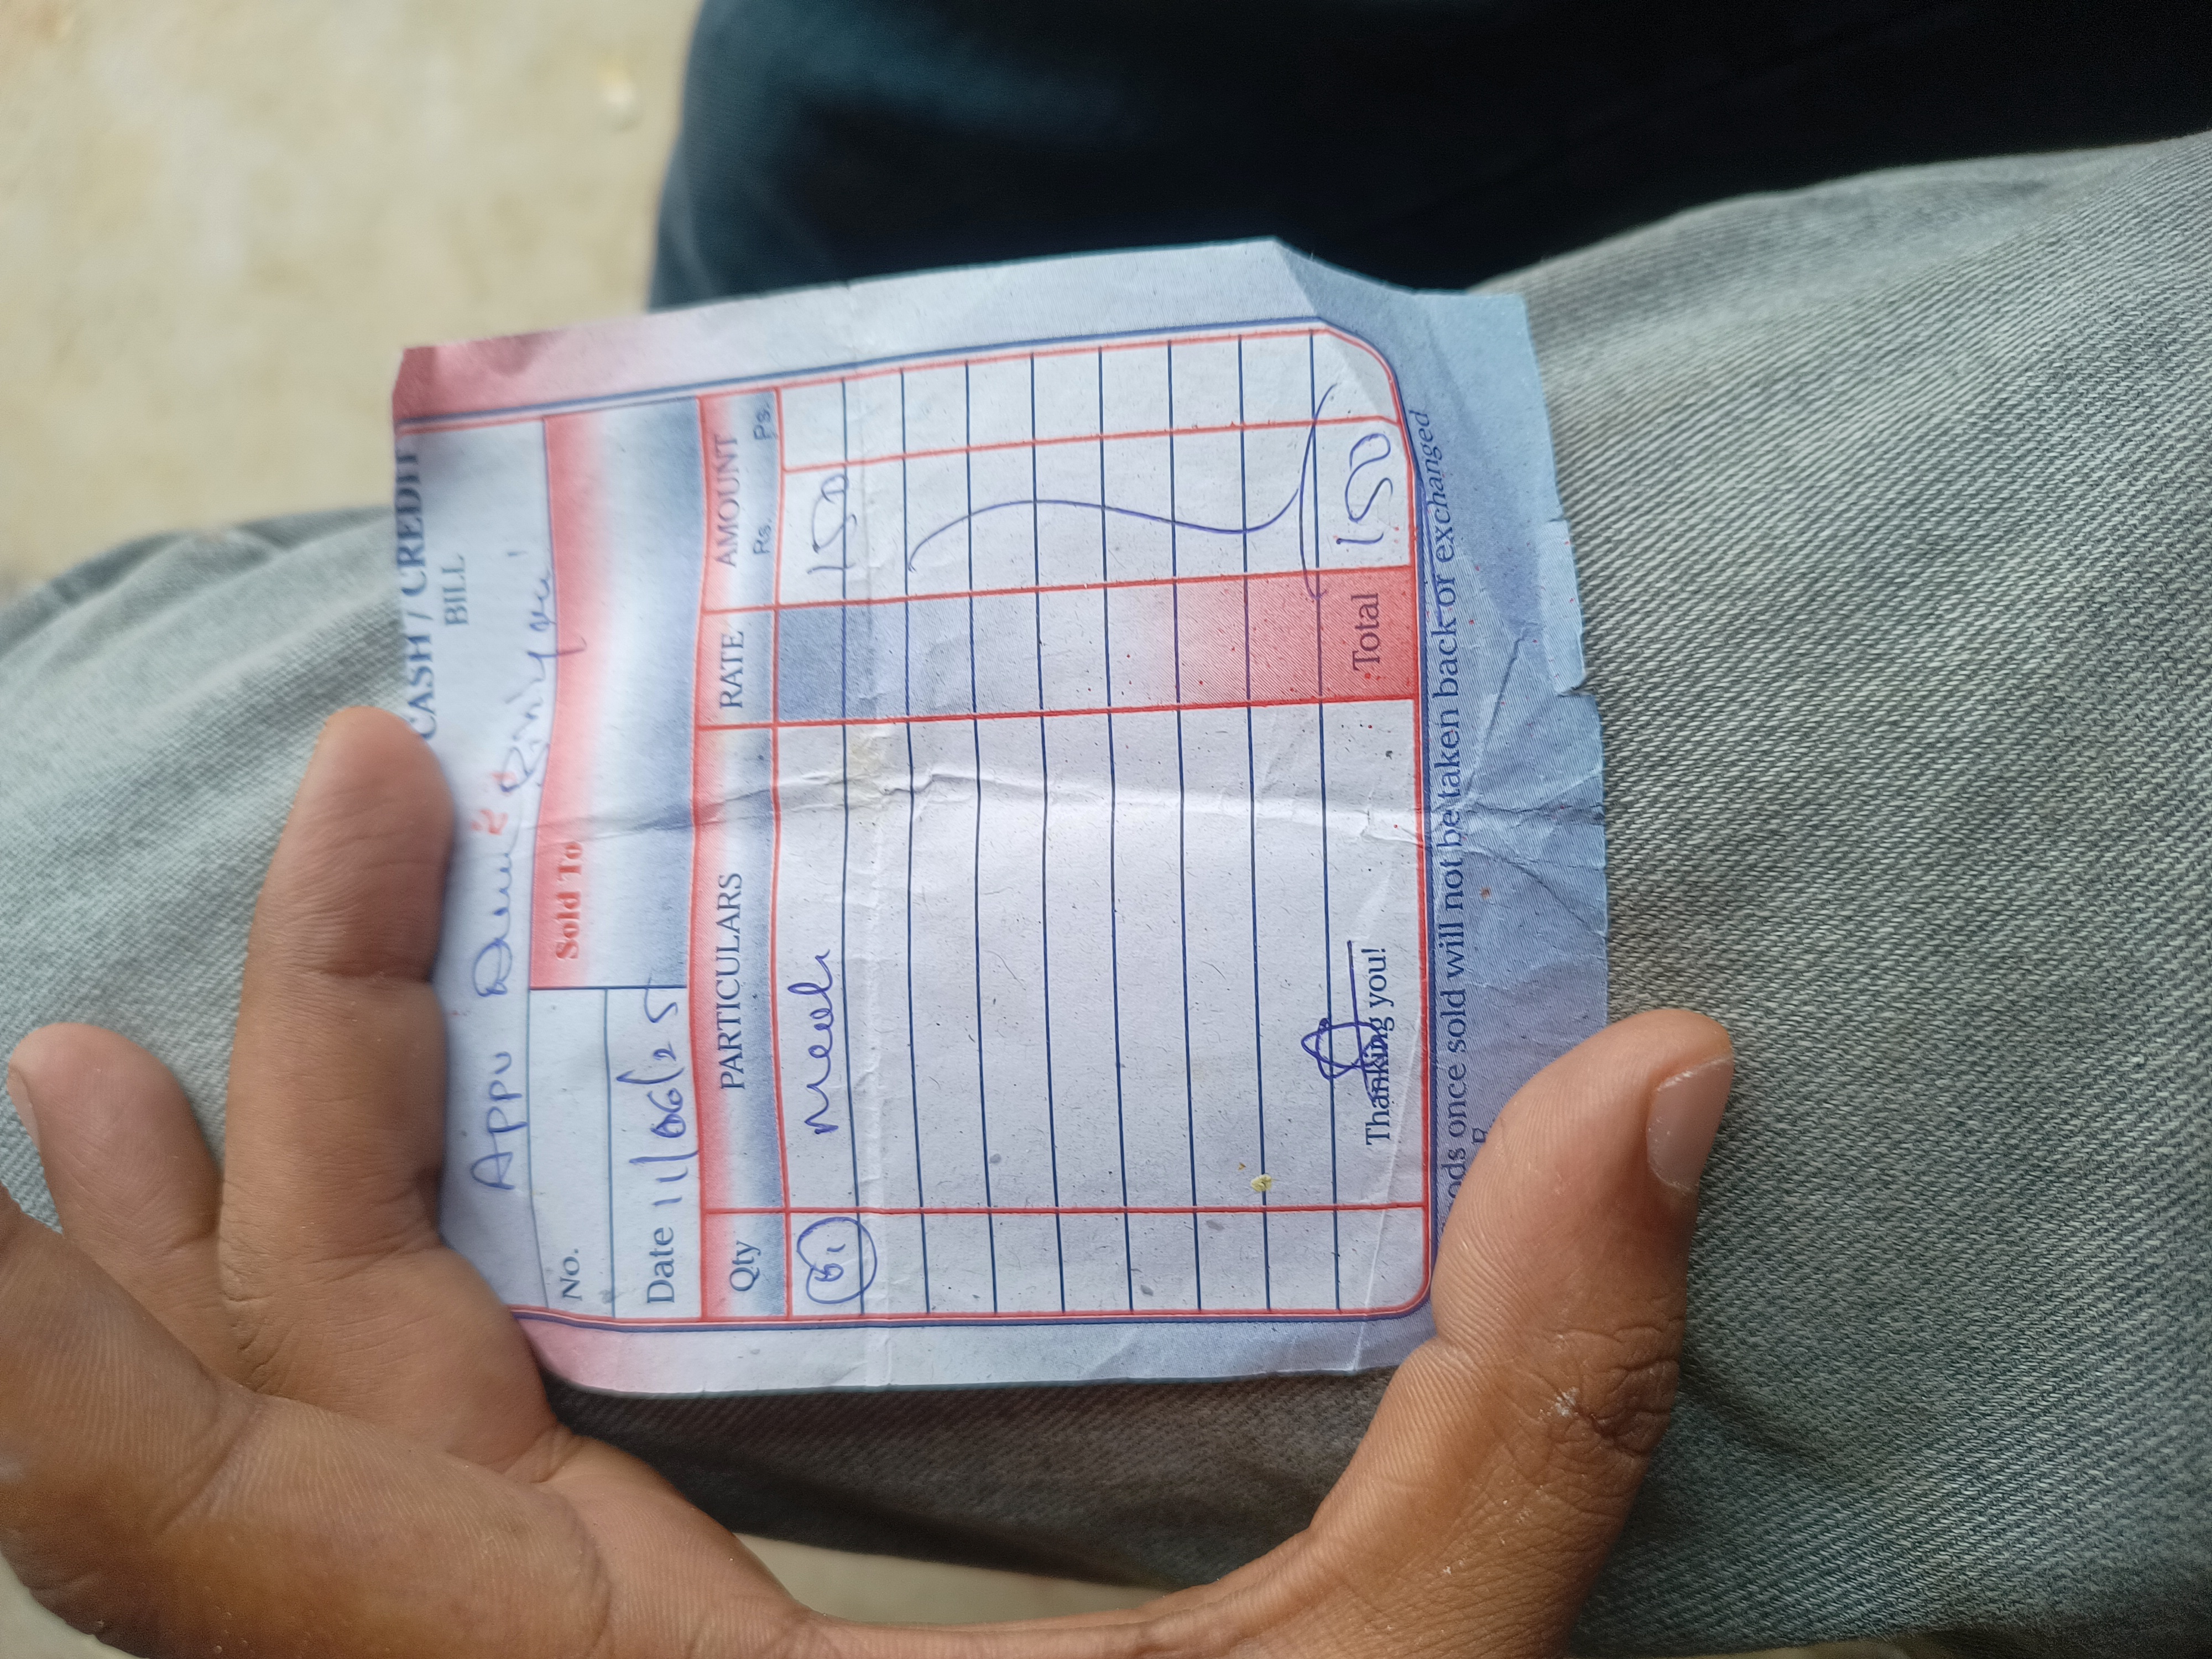 CASH / CREDIT
BILL
Appu Dum Biriyani
No.
Sold To
Date 11/06/25
Qty PARTICULARS RATE AMOUNT
Rs. Ps.
01 Meals 150
Thanking you!
Total 150
once sold will not be taken back or exchanged